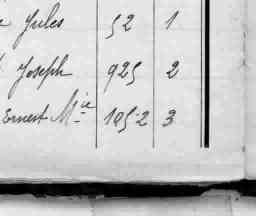 Jules 52 1
Joseph 925 2
Ernest Mie 1052 3